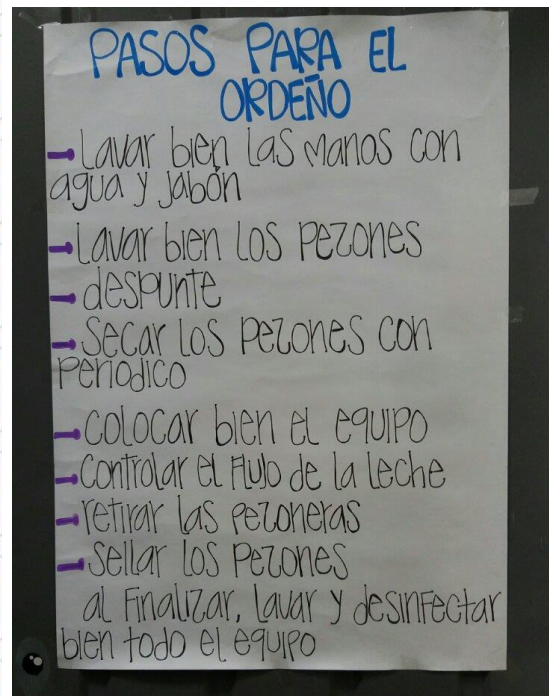 PASOS PARA EL
ORDEÑO
- Lavar bien las manos con
agua y jabón
- Lavar bien los pezones
- despunte
- Secar los pezones con
periodico
- colocar bien el equipo
- controlar el flujo de la leche
- retirar las pezoneras
- sellar los pezones
al finalizar, lavar y desinfectar
bien todo el equipo